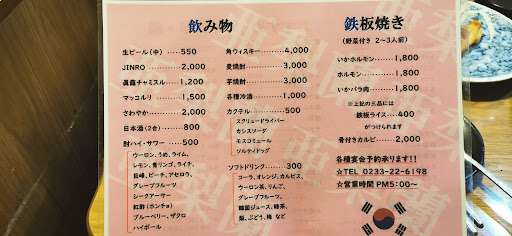 飲み物
生ビール(中)‥‥‥550
JINRO ‥‥‥‥ 2,000
眞露チャミスル‥‥‥1,200
マッコルリ ‥‥‥‥ 1,500
さわやか ‥‥‥‥ 2,000
日本酒(2合)‥‥‥ 800
酎ハイ・サワー‥‥‥500
ウーロン、うめ、ライム、
レモン、青リンゴ、ライチ、
巨峰、ピーチ、アセロラ、
グレープフルーツ
シークアーサー
紅酢(ホンチョ)
ブルーベリー、ザクロ
ハイボール
角ウィスキー‥‥‥4,000
麦焼酎 ‥‥‥‥ 3,000
芋焼酎 ‥‥‥‥ 3,000
各種冷酒‥‥‥‥1,000
カクテル ‥‥‥‥ 500
スクリュードライバー
カシスソーダ
モスコミュール
ソルティドッグ
ソフトドリンク‥‥‥‥300
コーラ、オレンジ、カルピス、
ウーロン茶、りんご、
グレープフルーツ、
韓国ジュース、緑茶、
梨、ぶどう、梅 など
鉄板焼き
(野菜付き 2~3人前)
いかホルモン‥‥‥1,800
ホルモン‥‥‥‥1,800
いかバラ肉‥‥‥‥1,800
※上記の三品には
鉄板ライス‥‥‥400
がつけられます
骨付きカルビ‥‥‥2,000
各種宴会予約承ります!!
☆TEL 0233-22-6198
☆営業時間 PM5:00~